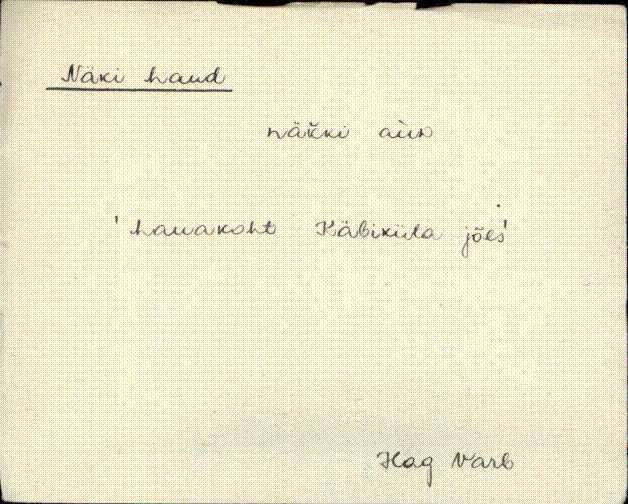 Näki haud
näk̆ki aùn
'hauakoht Käbiküla jões'
Hag Varb